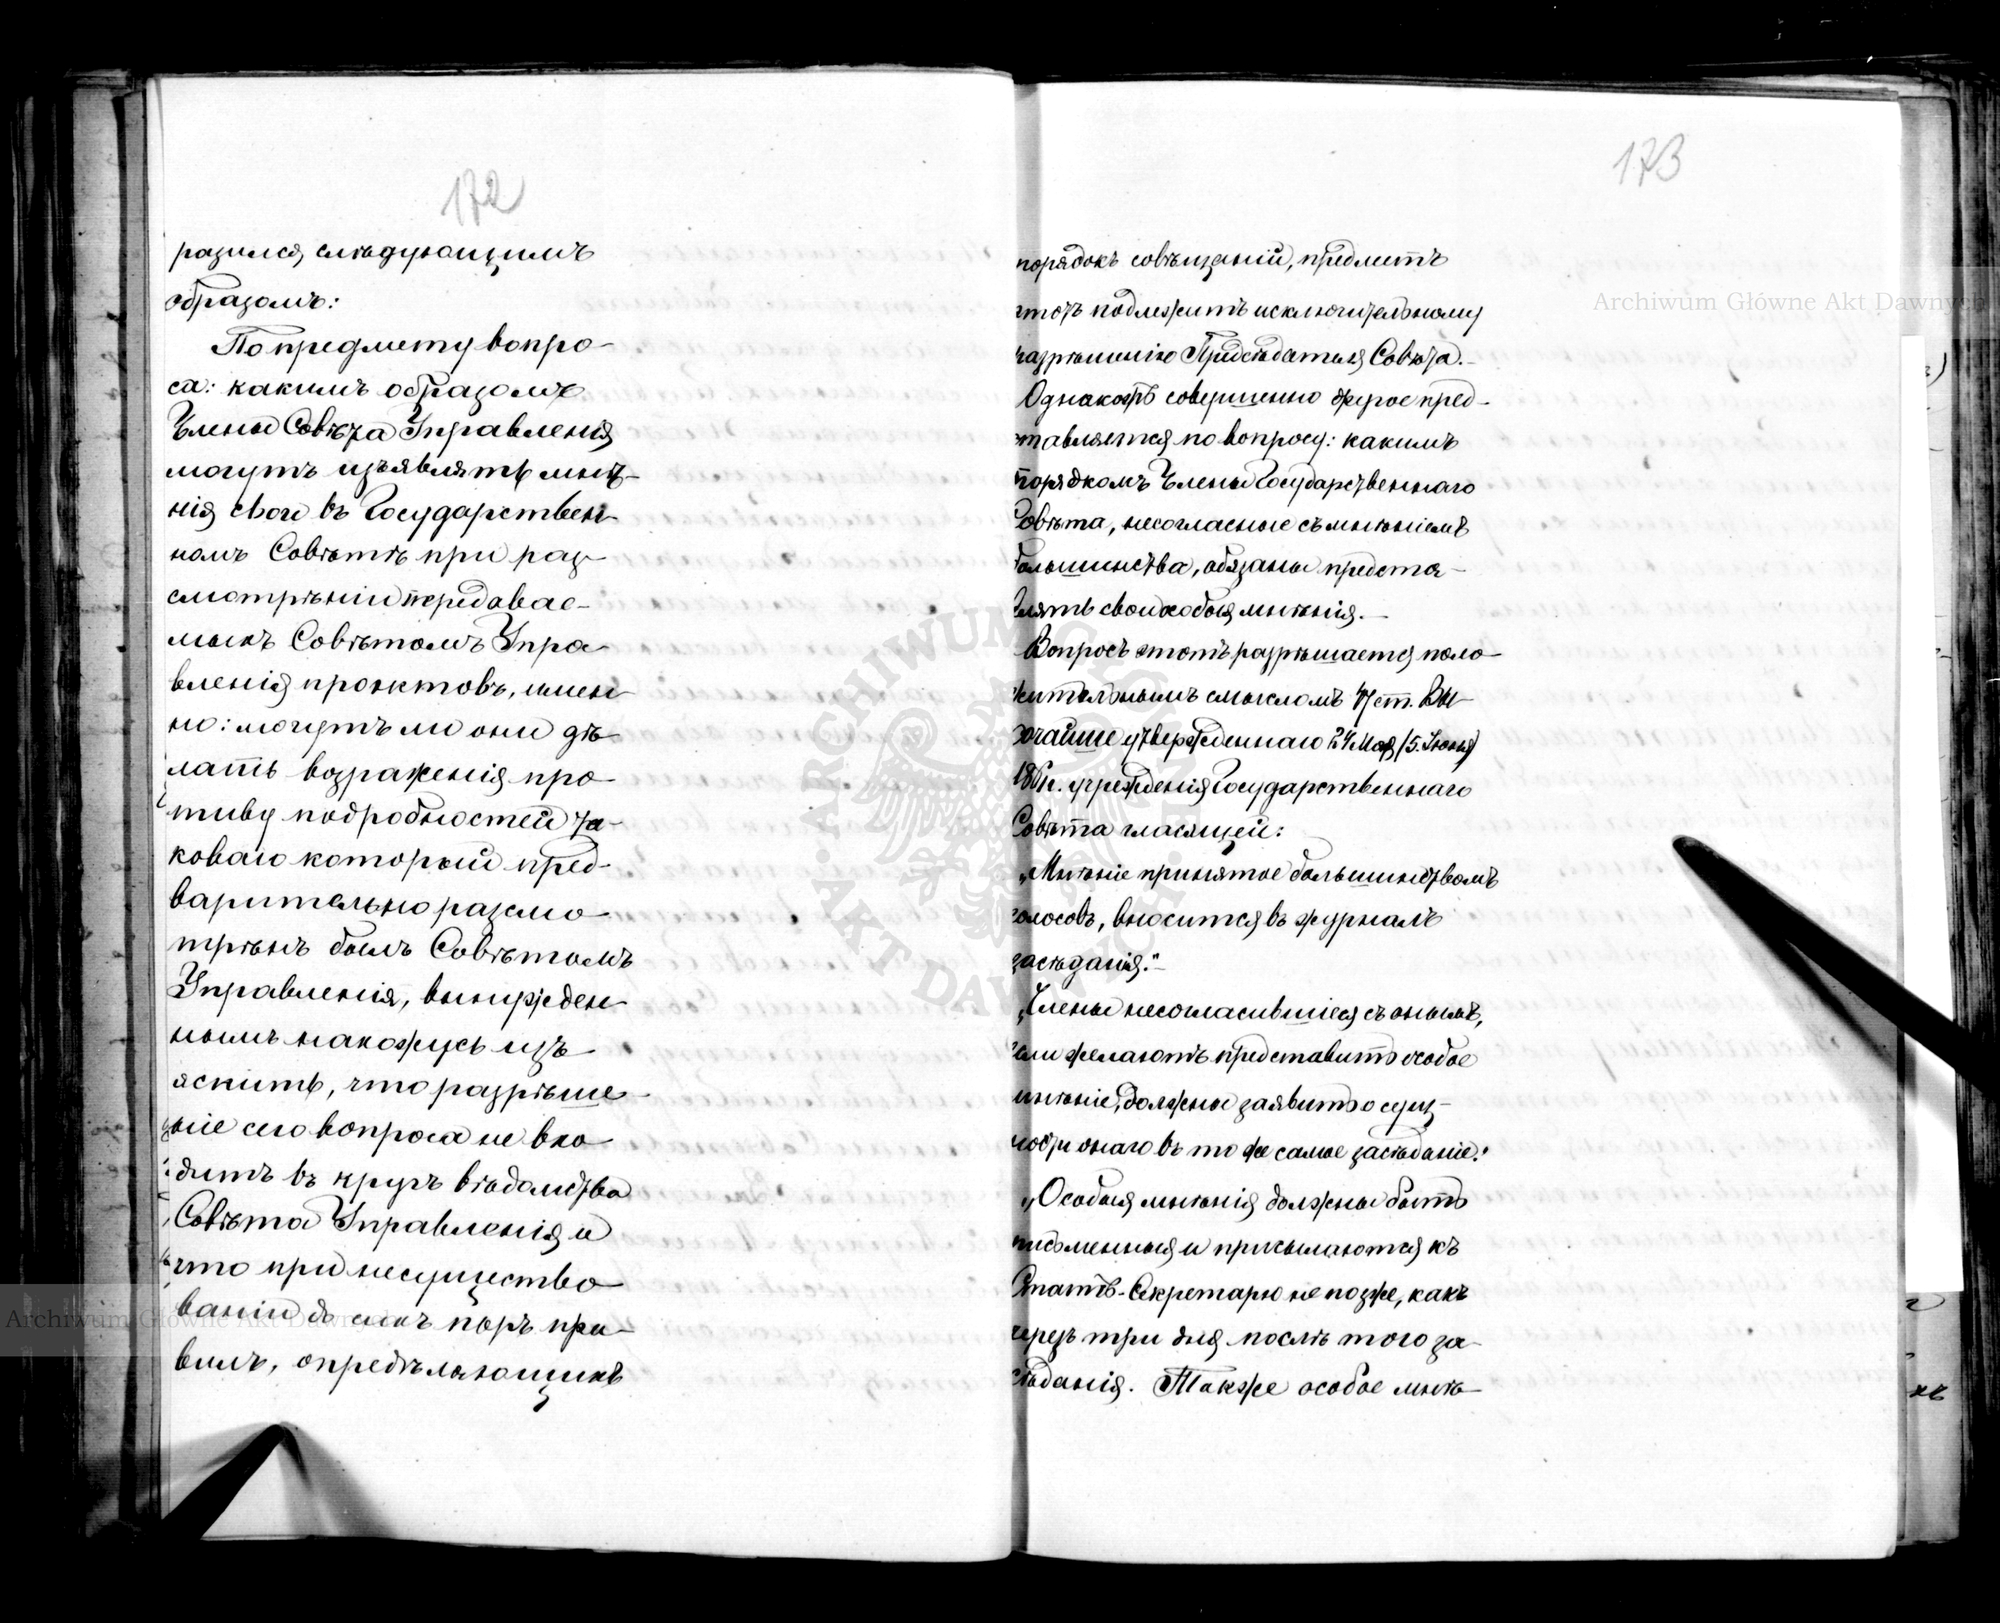 172
разился, слѣдующимъ
образомъ:
По предмету вопро-
са: какимъ образомъ
Члены Совѣта Управленія
могутъ изъявлять мнѣ-
нія свои въ Государствен-
номъ Совѣтѣ при раз-
смотрѣніи передавае-
мыхъ Совѣтомъ Упра-
вленія проэктовъ, имен-
но: могутъ ли они дѣ-
лать возраженія про-
тиву подробностей та-
коваго который пред-
варительно разсмо-
трѣнъ былъ Совѣтомъ
Управленія, вынужден-
нымъ нахожусь изъ-
яснить, что разрѣше-
ніе сего вопроса не вхо-
дитъ въ кругъ вѣдомства
Совѣта Управленія и
что при несущество-
ваніи до сихъ поръ пра-
вилъ, опредѣляющихъ
173
порядокъ совѣщаній, предметъ
этотъ подлежитъ исключительному
разрѣшенію Предсѣдателя Совѣта.-
Однакожъ совершенно другое пред-
ставляется по вопросу: какимъ
порядкомъ Члены Государственнаго
Совѣта, несогласные съ мнѣніемъ
большинства, обязаны предста-
влять свои особыя мнѣнія.-
Вопросъ этотъ разрѣшается поло-
жительнымъ смысломъ ст. Вы-
сочайше утвержденнаго 24 Мая (5. Іюня)
учрежденія Государственнаго
Совѣта гласящей:
„Мнѣніе принятое большинствомъ
голосовъ, вносится въ журналъ
засѣданія."-
„Члены несогласившіеся съ онымъ,
если желаютъ представить особое
мнѣніе, должны заявить о сущ-
ности онаго въ то же самое засѣданіе."
„Особыя мнѣнія должны быть
письменныя и присылаются къ
Статсъ-Секретарю не позже, какъ
черезъ три дня послѣ того за-
сѣданія. Также особое мнѣ-
Archiwum Główne Akt Dawnych
Archiwum Główne Akt Dawnych
ARCHIWUM GŁÓWNE AKT DAWNYCH